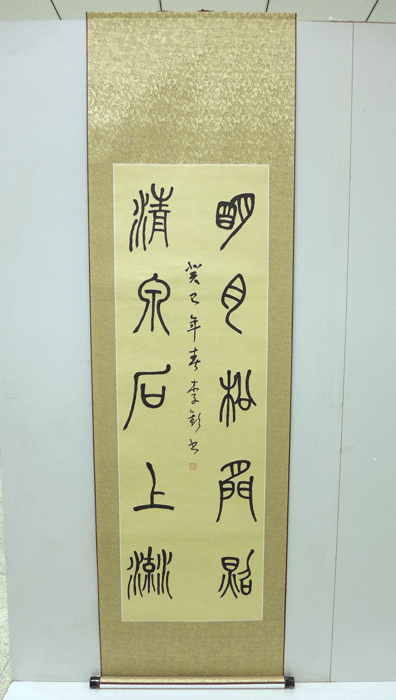 明月松間照
清泉石上流
癸巳年春李书